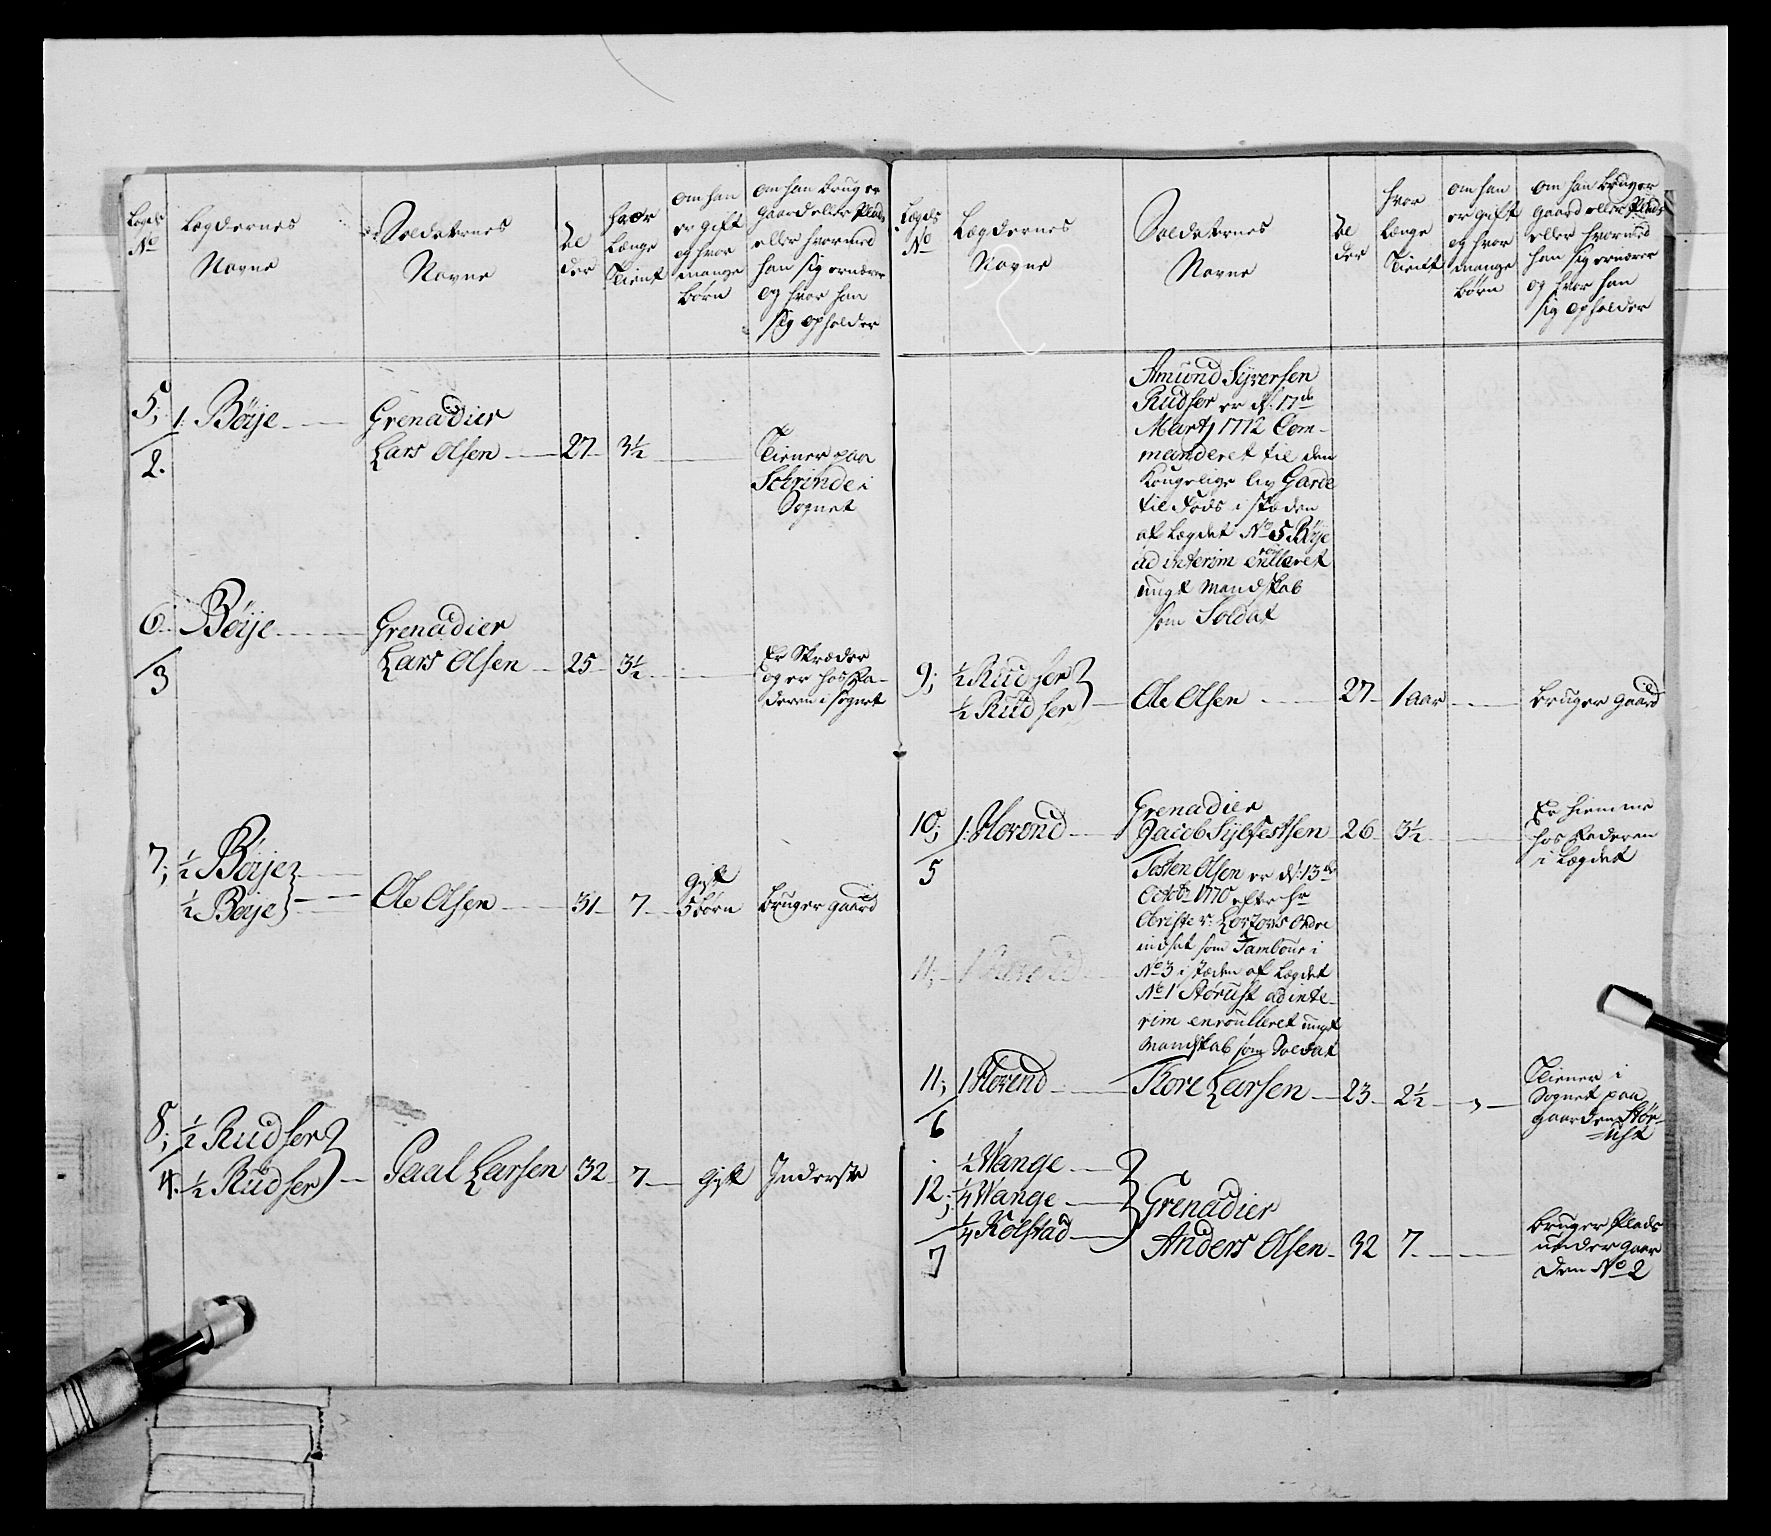 Legds
No
Lægdernes
Navne
Soldaternes
Navne
Al
der
hvor
Længe
Tient
om han
er gift
og hvor
mange
børn
om han bruger
gaard eller Plads
eller hvormed
han sig ernærer
og hvor han
sig opholder
5; 1. Börje
2.
Grenadier
Lars Olsen 27 3½
Tiener paa
Schrinde i
Sognet
6. Börje
3
Grenadier
Lars Olsen 25 3½
Er Skræder
og er hos Fa-
deren i Sognet
7; ½ Börje
½ Börje
Ole Olsen 31 7
gift
5 börn
bruger gaard
8; ½ Rudser
4. ½ Rudser
Paal Larsen 32 7 gift Inderste
Legds
No
Lægdernes
Navne
Soldaternes
Navne
Al
der
hvor
længe
Tient
om han
er gift
og hvor
mange
børn
om han bruger
gaard eller Plads
eller hvormed
han sig ernærer
og hvor han
sig opholder
Amund Syversen
Rudser er d: 17de
Martj 1772 Com-
manderet til den
Kongelige liv Garde
til Fods i stæden
af Lægdet No 5 Börje
ad interim enrulleret
ungt Mandskab
som Soldat
9; ½ Rudser
½ Rudser
Ole Olsen 27 1 aar bruger gaard
10; 1. Hovend
5
Grenadier
Jacob Sylfestsen 26 3½
Er hiemme
hos Faderen
i Lægdet
Tosten Olsen er d: 13de
Octob 1770 efter Hr
Ordre
indsat som Tambour i
No 3 i stæden af Lægdet
No 1 Störust ad inte-
rim enroulleret ungt
Mandskab som Soldat
11;
11; 1 Hovend
6
Tore Larsen 23 2½
Tiener i
Sognet paa
gaarden Stör-
=ust
½ Wange
12; ¼ Wange
¼ Kolstad
7
Grenadier
Anders Olsen 32 7
bruger Plads
under gaar
den No 2